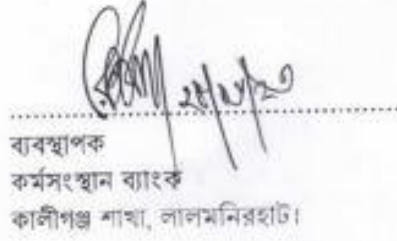 ব্যবস্থাপক
কর্মসংস্থান ব্যাংক
কালীগঞ্জ শাখা, লালমনিরহাট।